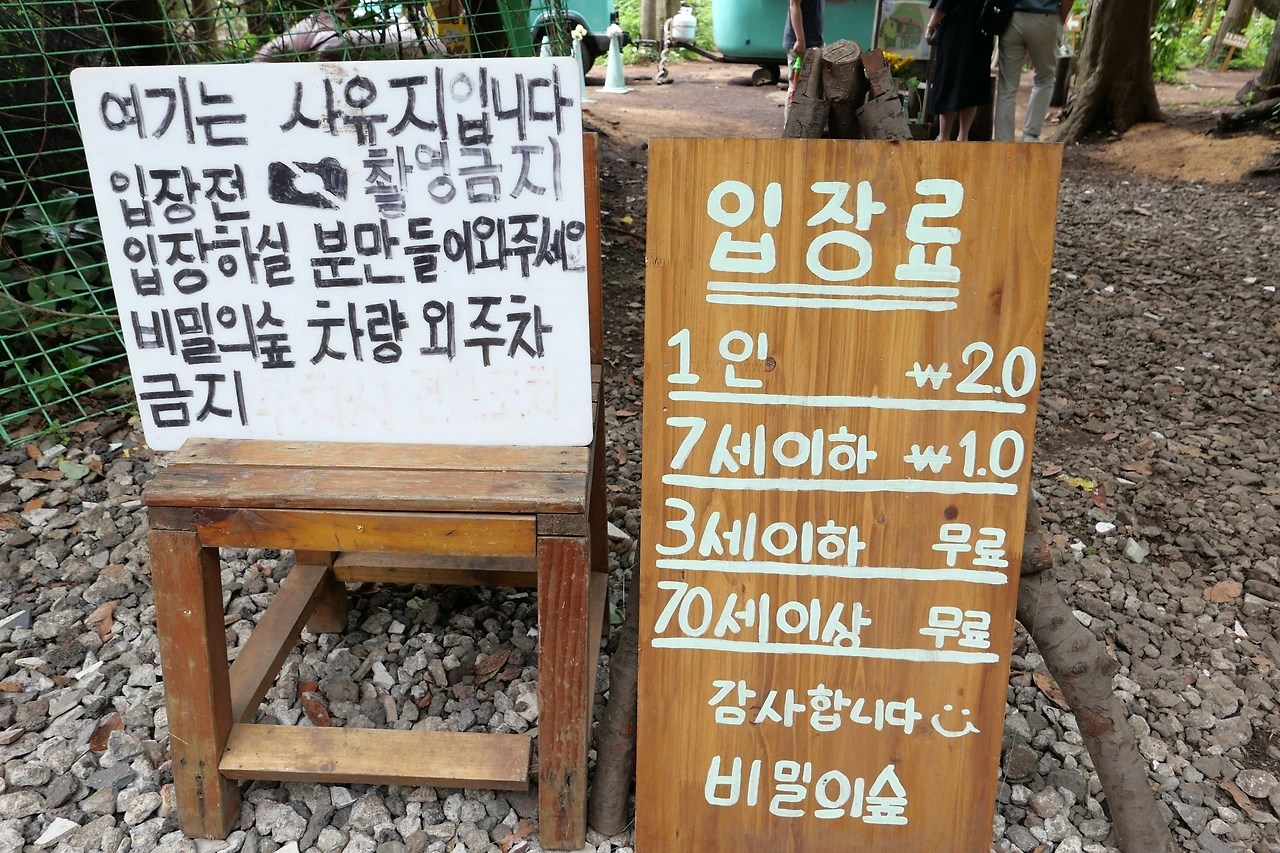 여기는 사유지입니다
입장전 촬영금지
입장하실 분만들어와주세요
비밀의숲 차량 외 주차
금지
입장료
1인 ₩2.0
7세이하 ₩1.0
3세이하 무료
70세이상 무료
감사합니다
비밀의숲